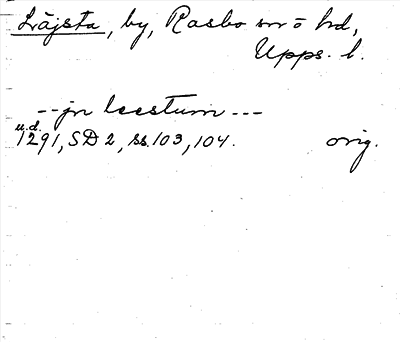 Läjsta, by, Rasbo sn o hd,
Upps. l.
-- jn leestum ---
u.d.
1291, SD 2, ss. 103, 104. orig.